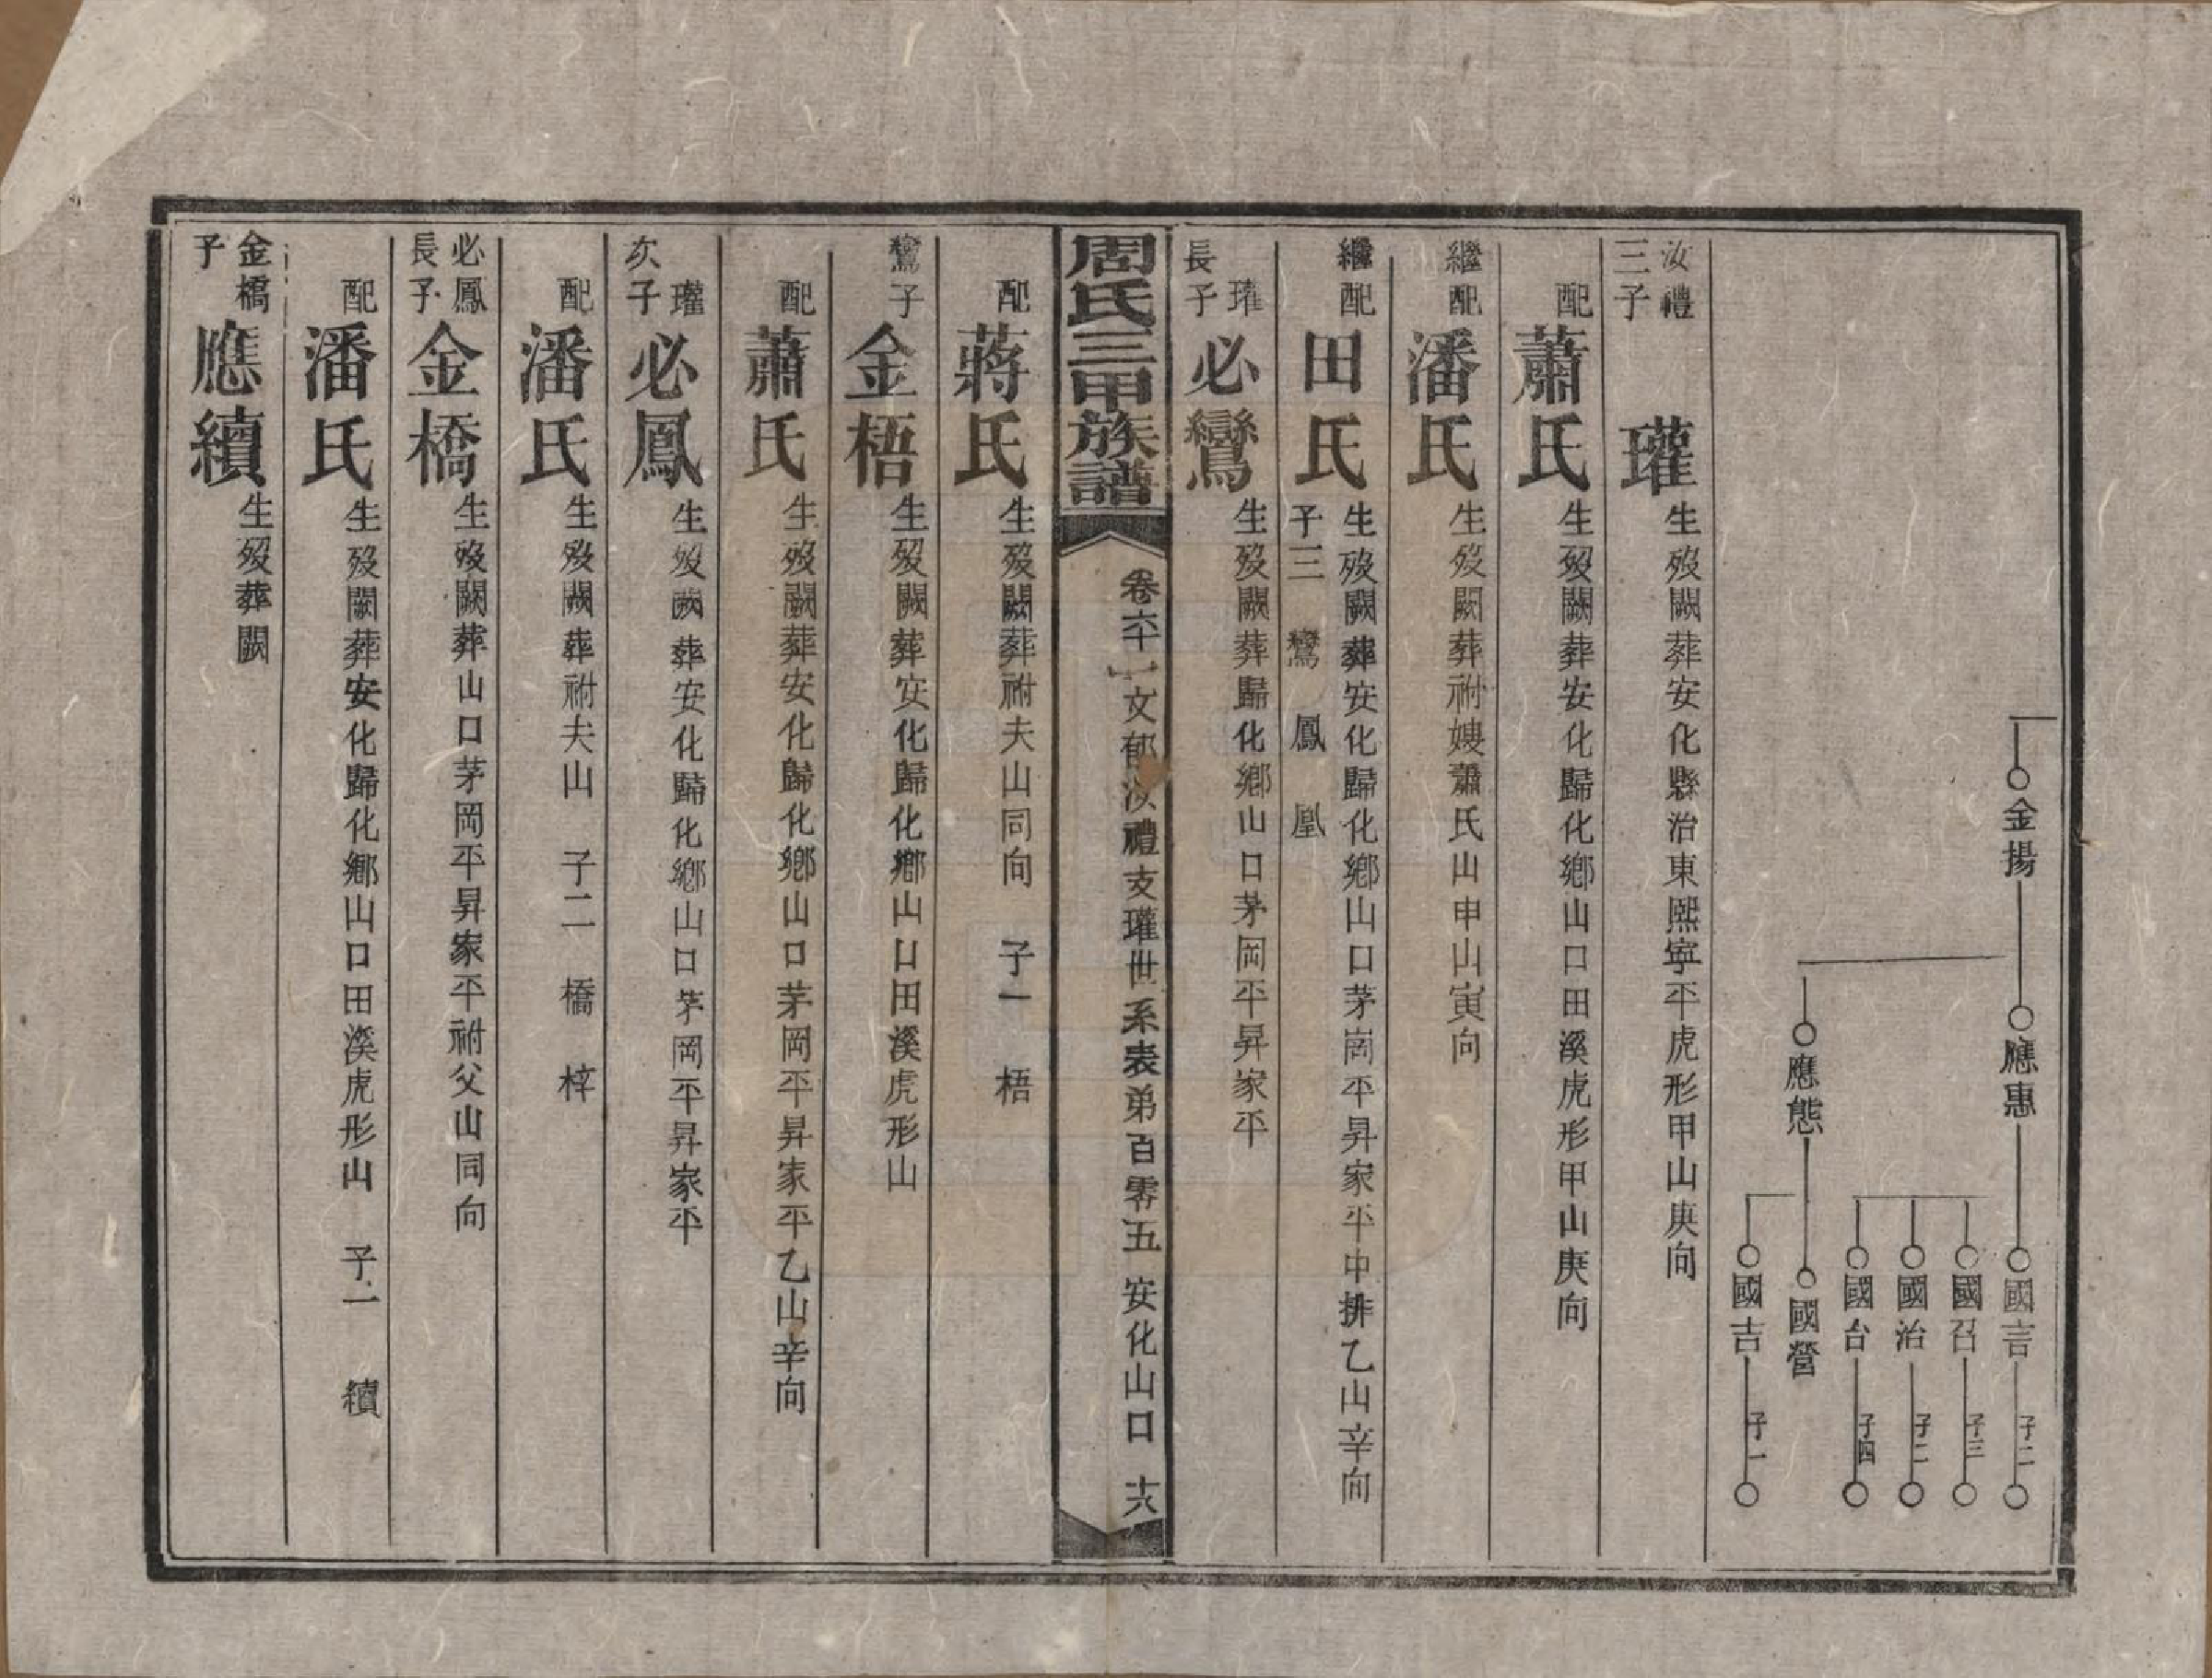 金揚
應惠
國言 子二
國召 子三
國治 子二
國台 子四
應態
國營
國吉 子一
汝禮三子 瓘 生歿闕葬安化縣治東熙寧平虎形甲山庚向
配 蕭氏 生歿闕葬安化歸化鄉山口田溪虎形甲山庚向
繼配 潘氏 生歿闕葬祔嫂蕭氏山申山寅向
繼配 田氏 生歿闕葬安化歸化鄉山口茅崗平昇家平中排乙山辛向
子三 鸞 鳳 凰
瓘長子 必鸞 生歿闕葬歸化鄉山口茅岡平昇家平
周氏三甲族譜 卷六十一 文郁汝禮支瓘世系表弟百零五 安化山口 十六
配 蔣氏 生歿闕葬祔夫山同向 子一 梧
鸞子 金梧 生歿闕葬安化歸化鄉山口田溪虎形山
配 蕭氏 生歿闕葬安化歸化鄉山口茅岡平昇家平乙山辛向
瓘次子 必鳳 生歿闕葬安化歸化鄉山口茅岡平昇家平
配 潘氏 生歿闕葬祔夫山 子二 橋 梓
必鳳長子 金橋 生歿闕葬山口茅岡平昇家平祔父山同向
配 潘氏 生歿闕葬安化歸化鄉山口田溪虎形山 子一 續
金橋子 應續 生歿葬闕